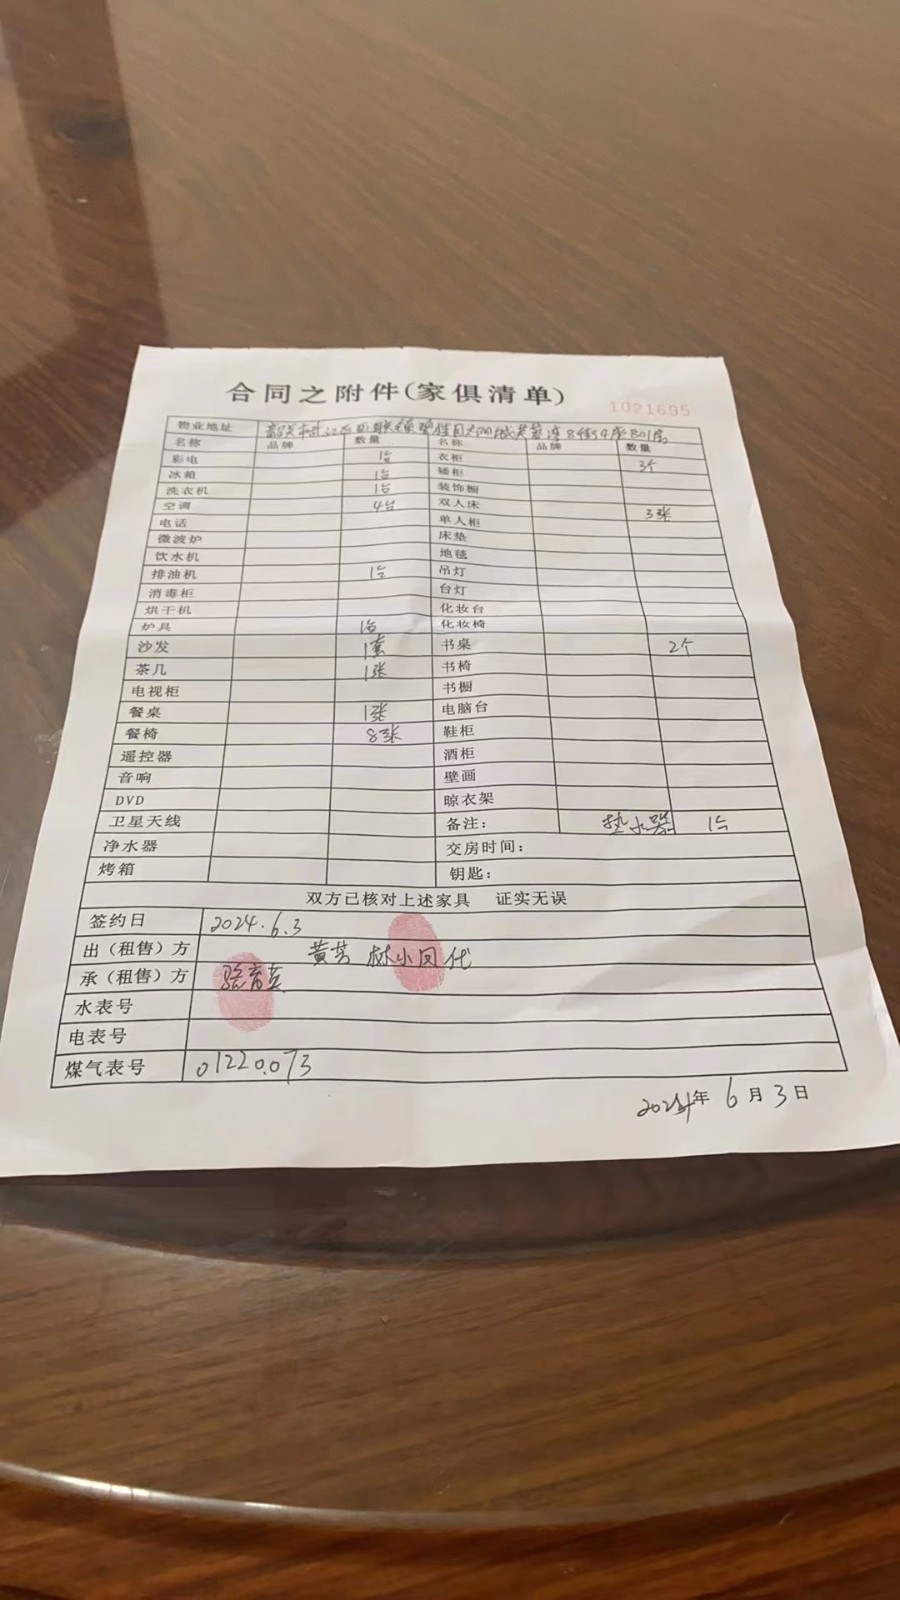 合同之附件(家俱清单)
1021695
物业地址 碧桂园太阳城芙蓉湾8街4座801房
名称 品牌 数量 名称 品牌 数量
彩电 1台 衣柜 3个
冰箱 1台 矮柜
洗衣机 1台 装饰橱
空调 4台 双人床 3张
电话 单人柜
微波炉 床垫
饮水机 地毯
排油机 1台 吊灯
消毒柜 台灯
烘干机 化妆台
炉具 1台 化妆椅
沙发 1套 书桌 2个
茶几 1张 书椅
电视柜 书橱
餐桌 1张 电脑台
餐椅 8张 鞋柜
遥控器 酒柜
音响 壁画
DVD 晾衣架
卫星天线 备注: 热水器 1台
净水器 交房时间:
烤箱 钥匙:
双方已核对上述家具 证实无误
签约日 2024.6.3
出（租售）方 黄芳 林小凤代
承（租售）方 育英
水表号
电表号
煤气表号 01220.073
2024年 6月3日